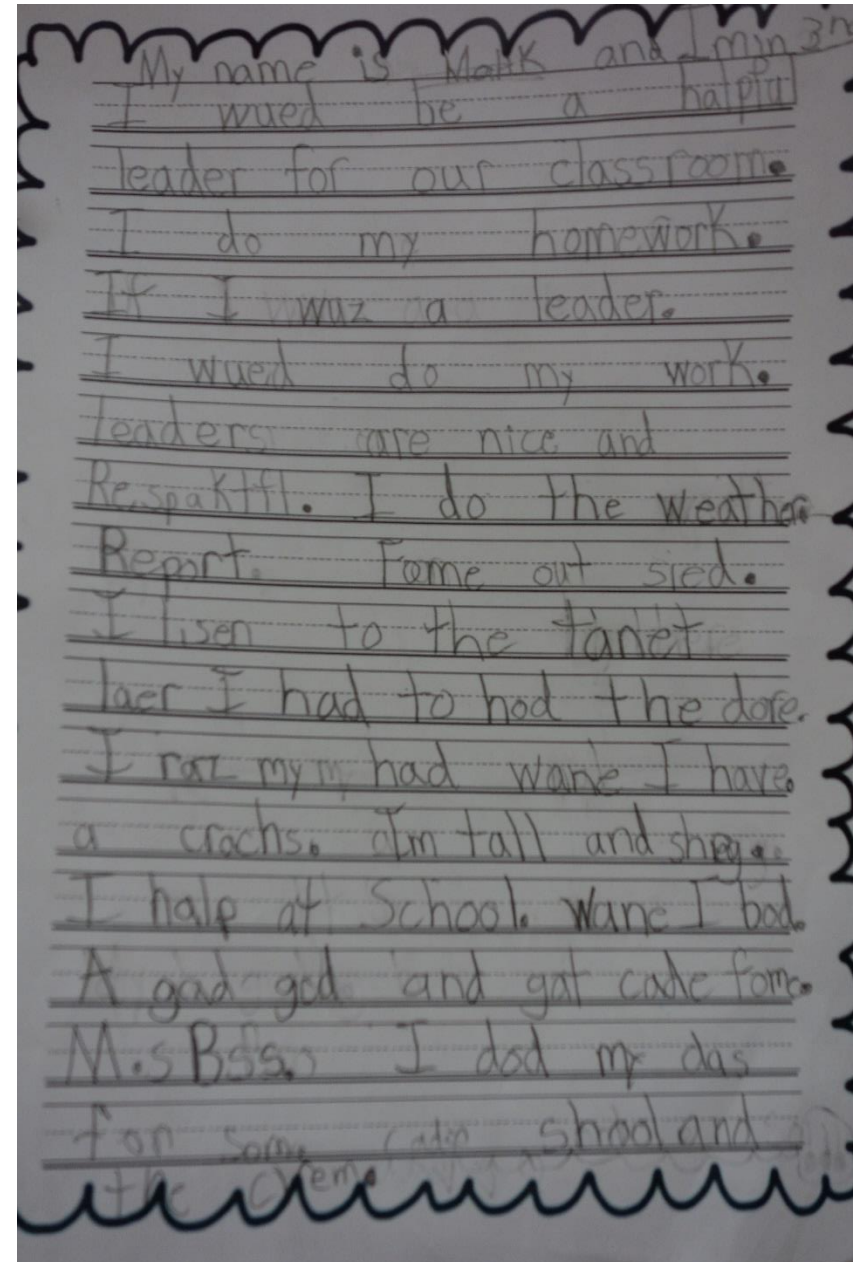 My name is Mark and Imin 3rd
I wued be a halpful
leader for our classroom.
I do my homework.
If I waz a leader.
I wued do my work.
leaders are nice and
Respaktfl. I do the weather
Report. Fome out sied.
I lisen to the tanet
laer I had to hod the dore.
I raz my had wane I have.
a crochs. Im tall and
I halp at School. wane I bod.
A gad god and gat cade fome.
M.sBss. I dod my das
for some shool and
the crem.